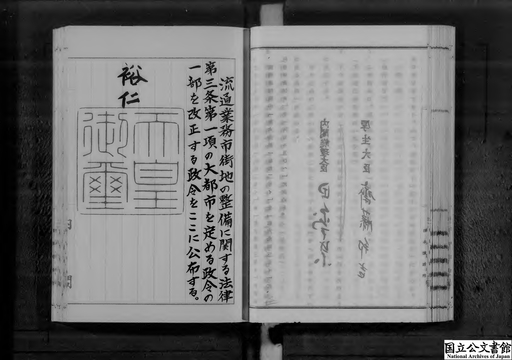 流通業務市街地の整備に関する法律
第三条第一項の大都市を定める政令の
一部を改正する政令をここに公布する。
裕仁
天皇
御璽
厚生大臣
内閣総理大臣
国立公文書館
National Archives of Japan